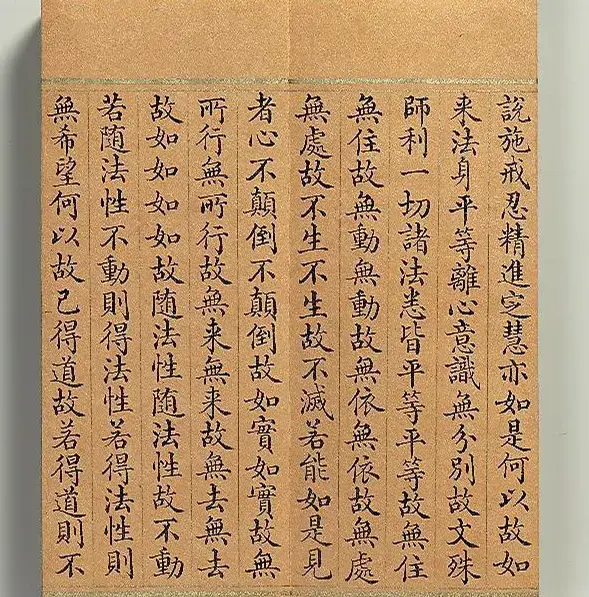 說施戒忍精進定慧亦如是何以故如
来法身平等離心意識無分別故文殊
師利一切諸法悉皆平等平等故無住
無住故無動無動故無依無依故無處
無處故不生不生故不滅若能如是見
者心不顛倒不顛倒故如實如實故無
所行無所行故無来無来故無去無去
故如如如如故随法性随法性故不動
若随法性不動則得法性若得法性則
無希望何以故已得道故若得道則不